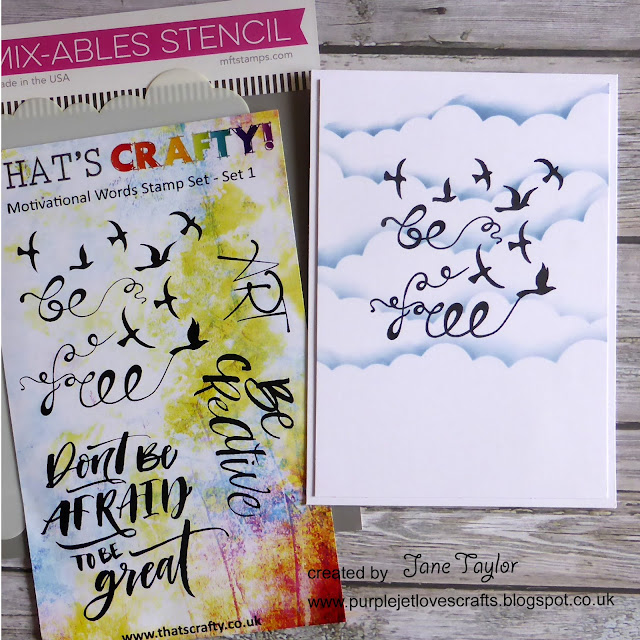 MIX-ABLES STENCIL
mftstamps.com
ade in the USA
HAT'S CRAFTY!
Motivational Words Stamp Set - Set 1
be
free
ART
BE
CREATIVE
DON'T BE
AFRAID
TO BE
great
www.thatscrafty.co.uk
be
free
created by Jane Taylor
www.purplejetlovescrafts.blogspot.co.uk